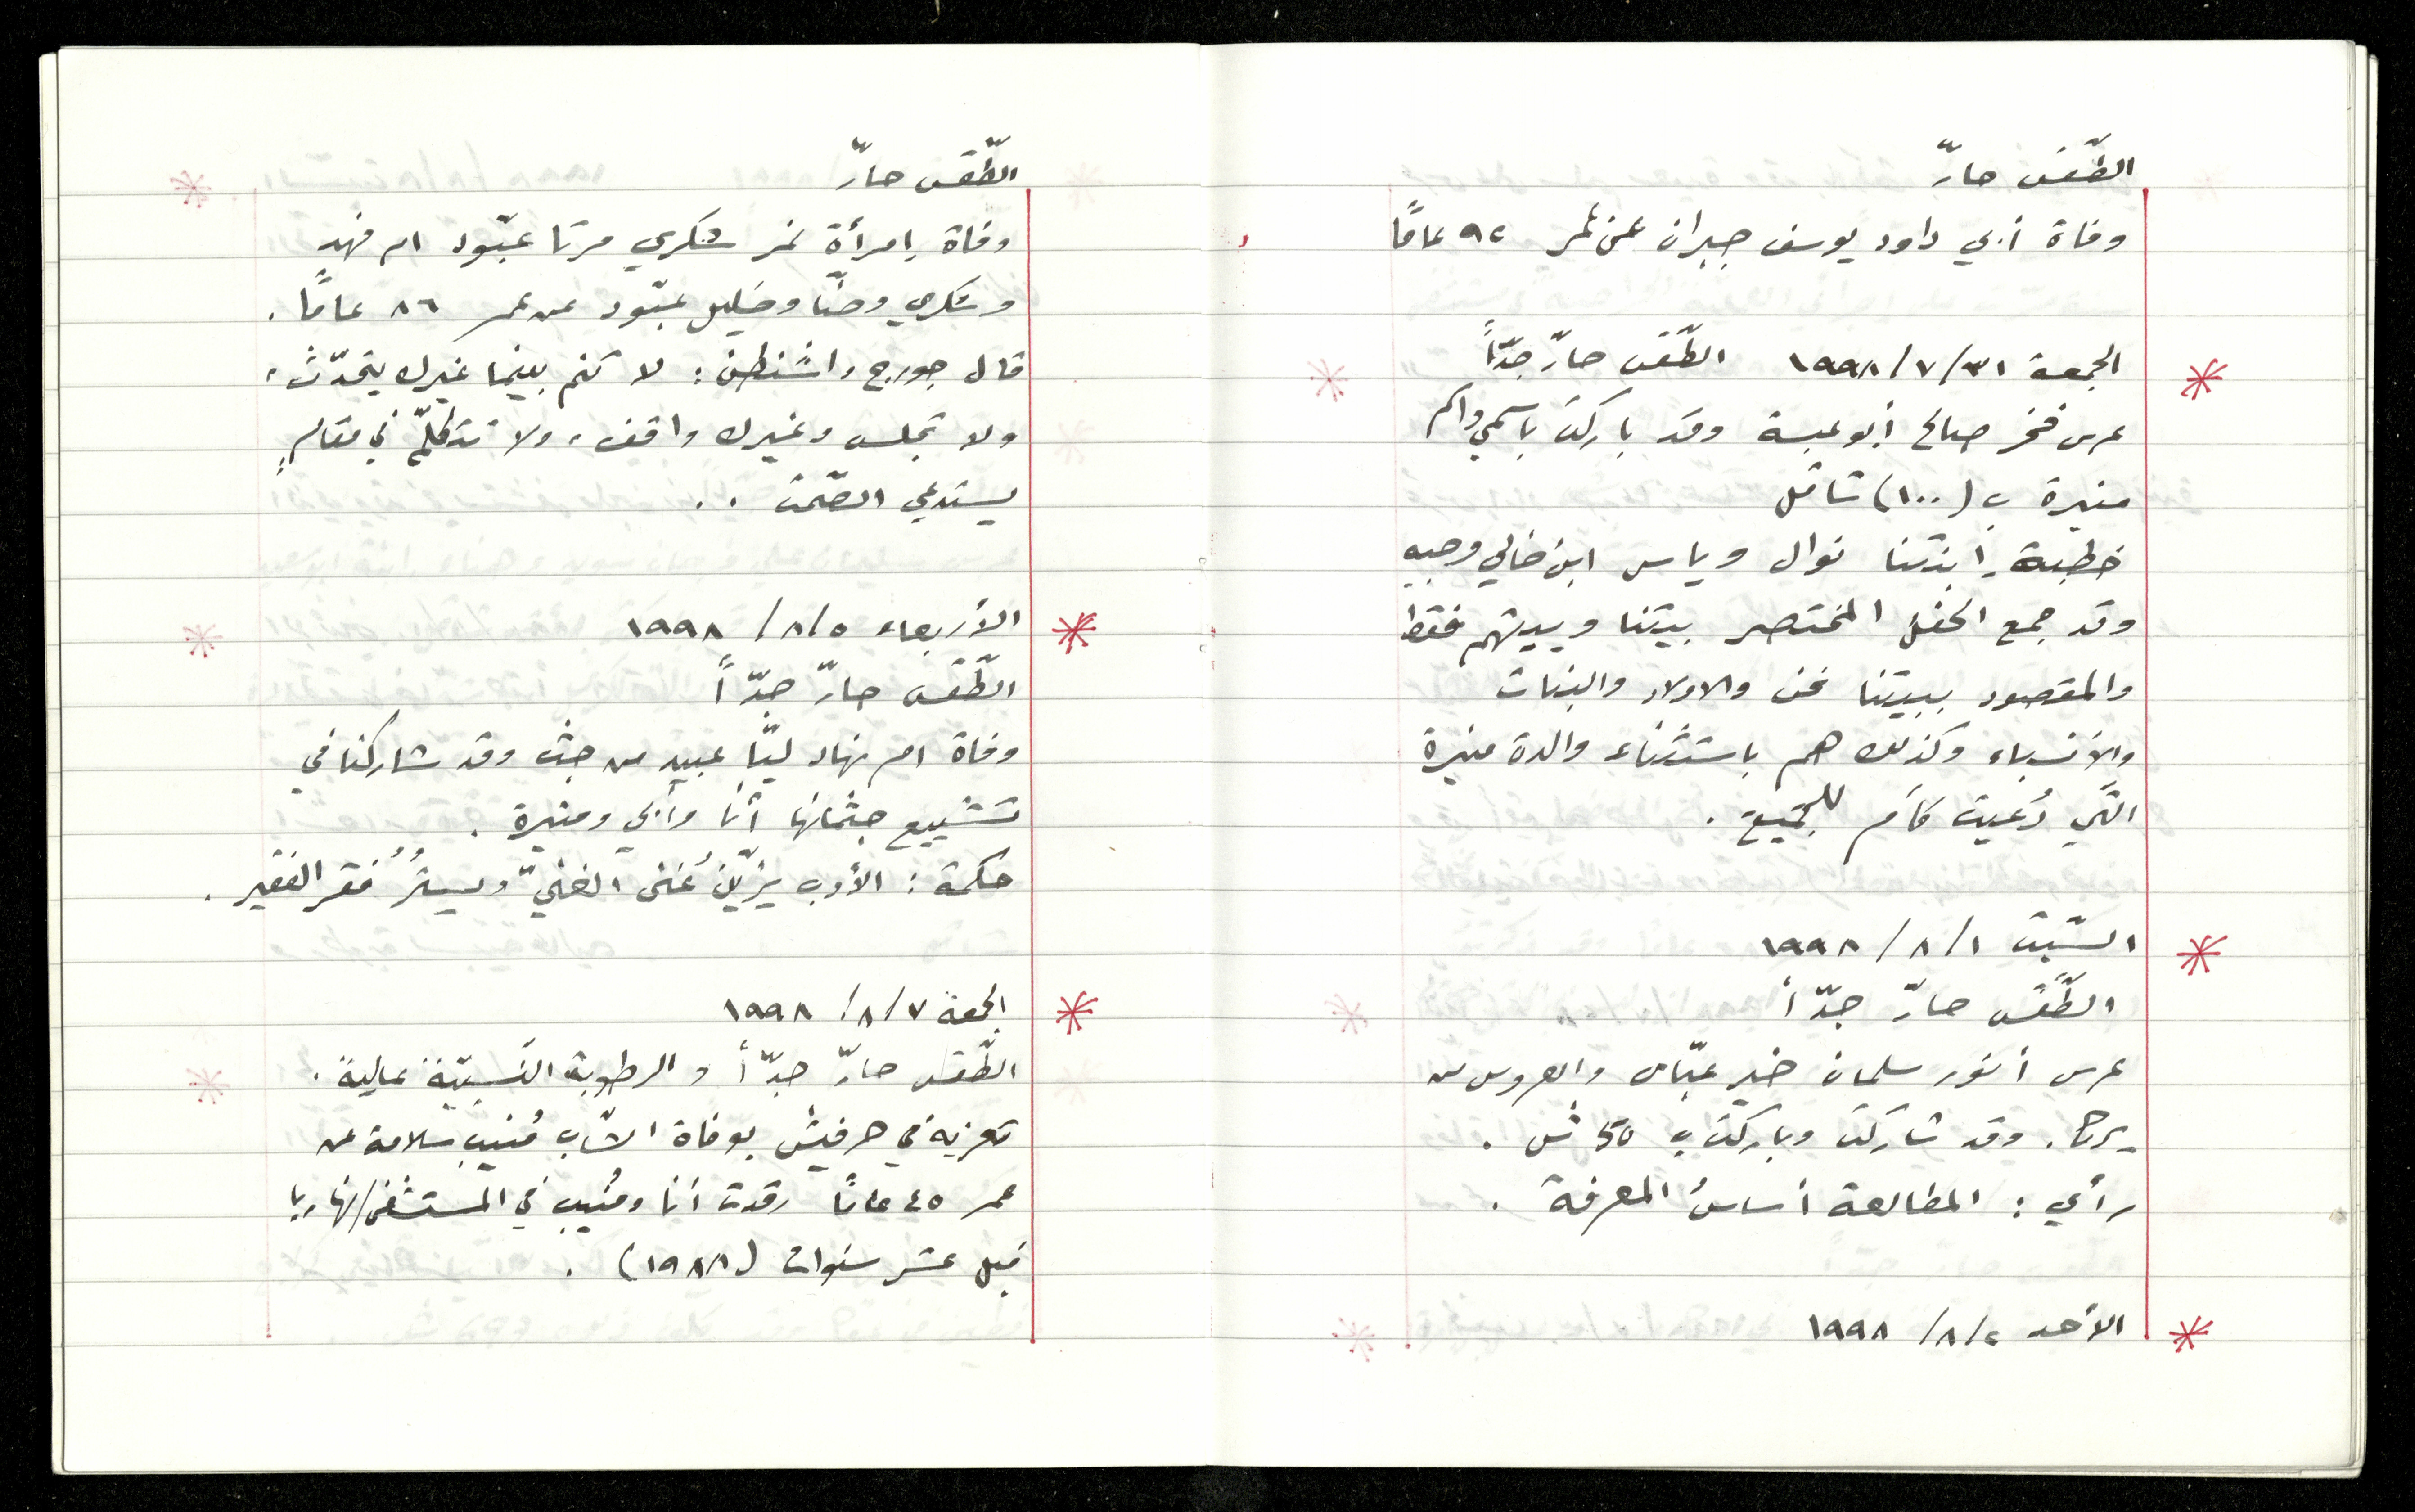 الطّقس حارّ
وفاة أبي داود يوسف جبران عن عُمر ٩٢ عامًا
الجمعة ٣١/٧/١٩٩٨ الطّقس حارّ جدّاً
عرس فخر صالح أبو عبسة وقد باركتُ باسمي واسم
منيرة بِ (١٠٠) شاقل
خطبة إبنتنا نوال وياسر ابن خالي وجيه
وقد جمع الحفل المختصر بيتنا وبيتهم فقط
والمقصود ببيتنا نحن والاولاد والبنات
والأنسباء وكذلك هم باستثناء والدة منيرة
الّتي دُعيت كأم للجميع.
السّبت ١/٨/١٩٩٨
الطّقس حارّ جدّاً
عرس أنور سلمان خير عبّاس والعروس من
يركا. وقد شاركتُ وباركتُ بِ 50 ش.
رأي: المطالعة أساسُ المعرفة.
الأحد ٢/٨/١٩٩٨
الطّقس حارّ
وفاة إمرأة نمر شكري مرتا عبّود ام فهد
وشكري وحنّا وخليل عبّود عن عمر ٨٦ عامًا.
قال جورج واشنطن: لا تنم بينما غيرك يتحدّث،
ولا تجلس وغيرك واقف، ولا تتكلّم في مقامٍ
يستدعي الصّمت..
الأربعاء ٥/٨/١٩٩٨
الطّقس حارّ جدّاً
وفاة ام نهاد ليّا عبيد من جث وقد شاركنا في
تشييع جثمانها أنا وأبي ومنيرة.
حكمة: الأدب يزيّنُ غنى الغنيّ ويسترُ فقر الفقير.
الجمعة ٧/٨/١٩٩٨
الطّقس حارّ جدّاً والرطوبة النّسبيّة عالية.
تعزية في حرفيش بوفاة الشّاب مُنيب سلامة عن
عمر ٤٥ عامًا رقدت أنا ومُنيب في المستشفى/نهاريا
قبل عشر سنوات (١٩٨٨).